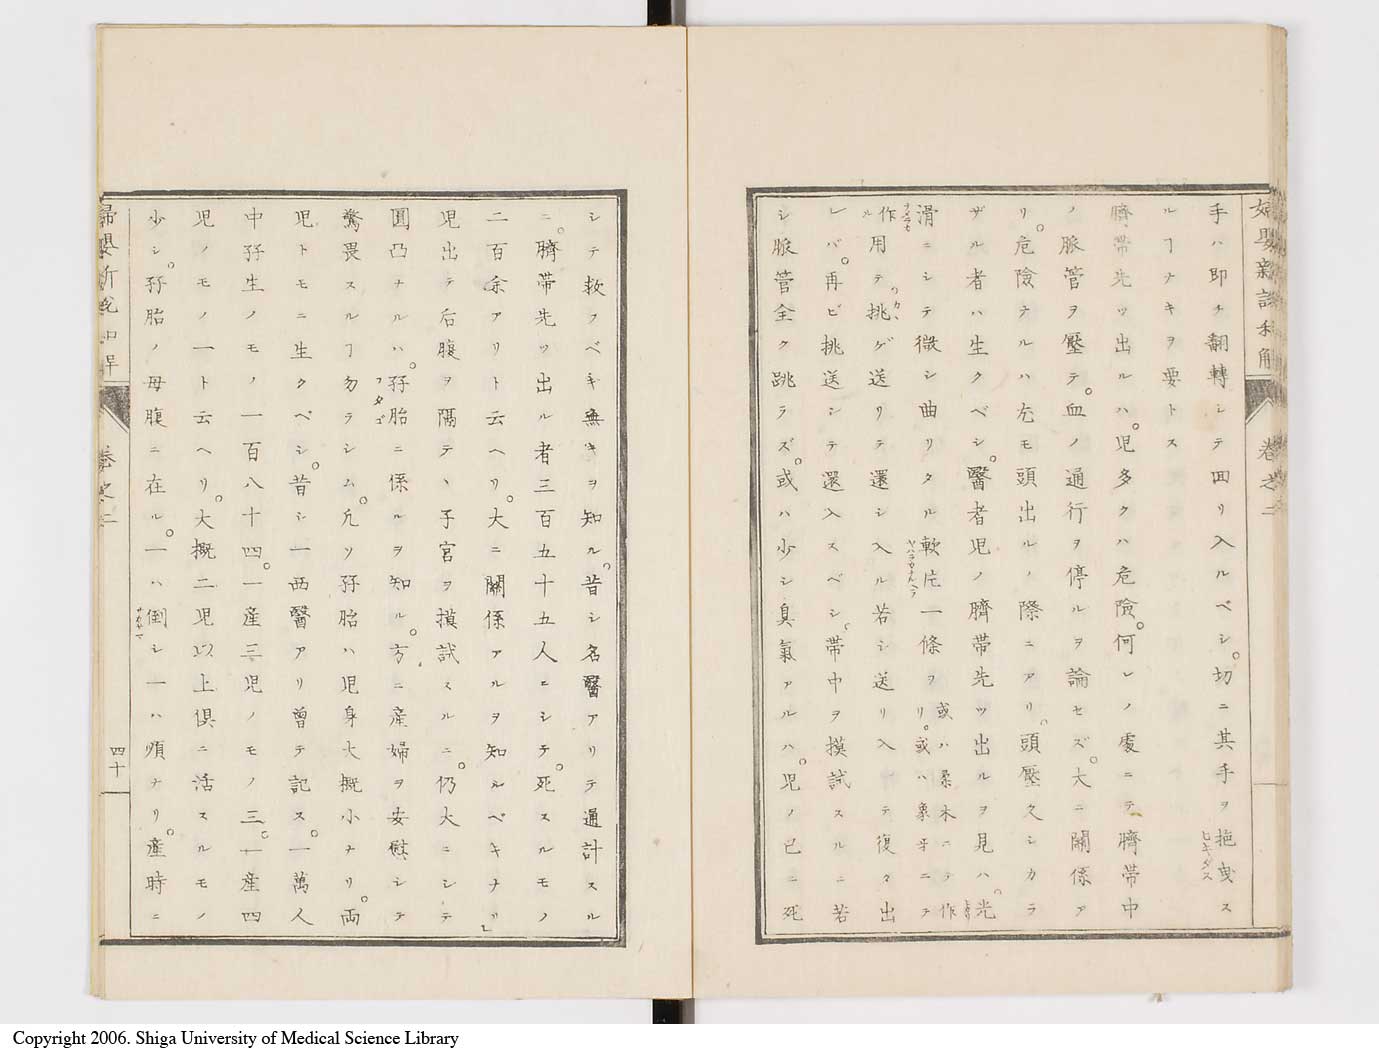 婦嬰新説和解
卷之二
手ハ即チ翻轉シテ回リ入ルベシ。切ニ其手ヲ拖曳ス
ヒキダス
ルヿナキヲ要トス
臍帶先ツ出ルハ。児多クハ危險。何レノ處ニテ臍帶中
ノ脈管ヲ壓テ。血ノ通行ヲ停ルヲ論セズ。大ニ關係ア
リ。危險ナルハ尤モ頭出ルノ際ニアリ。頭壓久シカラ
ザル者ハ生クベシ。醫者児ノ臍帶先ツ出ルヲ見ハ。光
滑ニシテ微シ曲リタル軟片一條ヲ 或ハ柔木ニテ作リ。或ハ象牙ニテ
ナメラカ
ヤハラカナルヘラ
作ル 用テ挑ゲ送リテ還シ入ル若シ送リ入テ復タ出
レバ。再ビ挑送シテ還入スベシ。帶中ヲ摸試スルニ若
シ脈管全ク跳ラズ。或ハ少シ臭氣アルハ。児ノ已ニ死
シテ救フベキ無キヲ知ル。昔シ名醫アリテ通計スル
ニ。臍帶先ツ出ル者三百五十五人ニシテ。死スルモノ
二百余アリト云ヘリ。大ニ關係アルヲ知ルベキナリ
児出テ后腹ヲ隔テ、子宮ヲ摸試スルニ。仍大ニシテ
圓凸ナルハ。孖胎ニ係ルヲ知ル。方ニ産婦ヲ安慰シテ
フタゴ
驚畏スルヿ勿ラシム。凡ソ孖胎ハ児身大概小ナリ。両
児トモニ生クベシ。昔シ一西醫アリ曾テ記ス。一萬人
中孖生ノモノ一百八十四。一産三児ノモノ三。一産四
児ノモノ一ト云ヘリ。大概二児以上倶ニ活スルモノ
少シ。孖胎ノ母腹ニ在ル。一ハ倒シ一ハ順ナリ。産時ニ
サカサマ
婦嬰新説和解
卷之二
四十
Copyright 2006. Shiga University of Medical Science Library